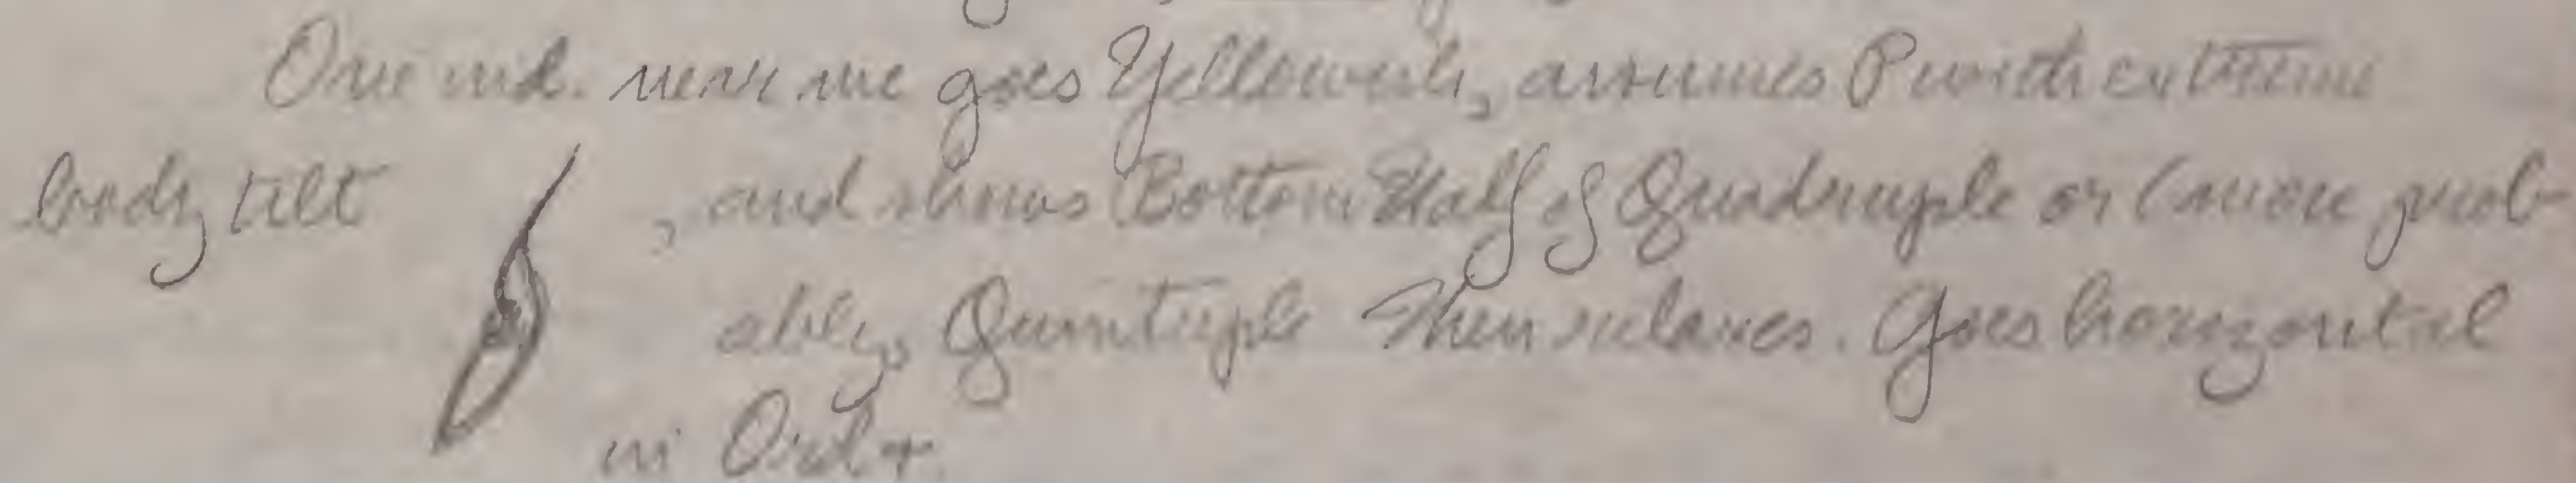 One ind. near me goes Yellowish, assumes P with extreme
body tilt , and shows Bottom Half of Quadruple or (more prob-
ably, Quintuple Then relaxes. Goes horizontal
in